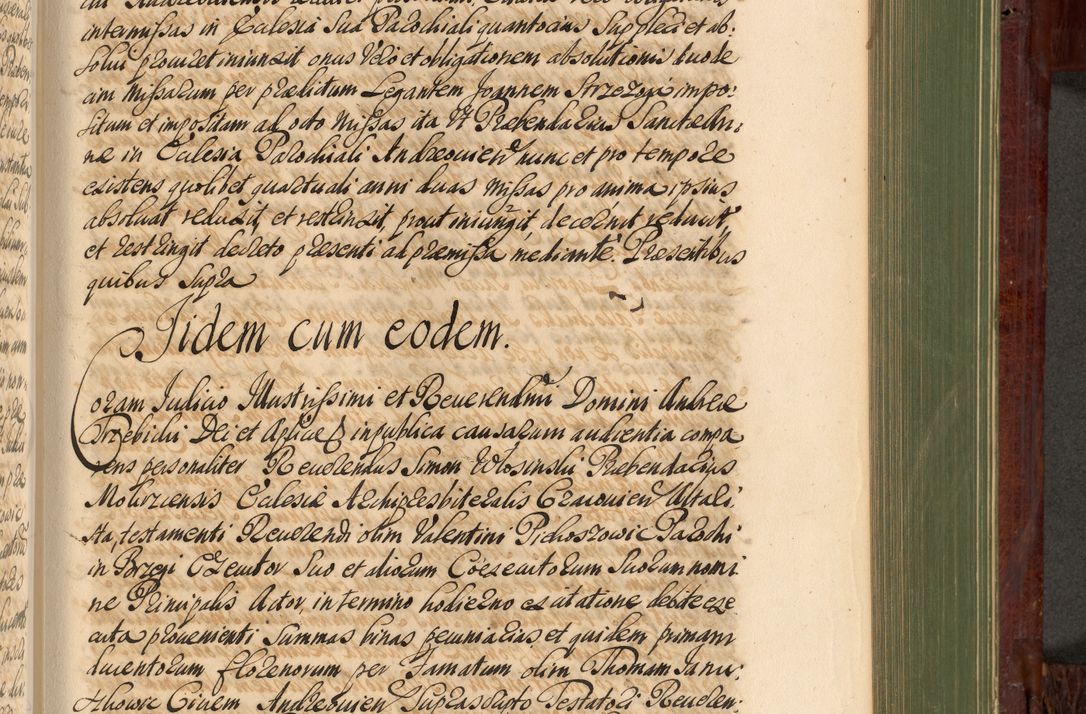 intermissas in Ecclesia Sua Parochiali quantocius Suppleri et ab:
solui procuret iniunxit onus vero et obligationem absolutionis duode
cim Missarum per præditum Legantem Joannem Strzezon impo:
situm et impositam ad octo Missas ita Vt Præbendarius Sanctæ An:
næ in Ecclesia Parochiali Andreouien nunc et pro tempore
existens quolibet quartuali anni duas Missas pro anima ipsius
absoluat reduxit, et restrinxit, prout iniungit decernit reducit,
et restringit decreto præsenti ad præmissa mediante. Præsentibus
quibus supra
Iidem cum eodem.
Coram Iudicio Illustrissimi et Reuerendmi Domini Andreæ
Trzebicki Dei et Aplicæ & in publica causarum audientia compa
rens personaliter Reuerendus Simon Wlosinski Præbendarius
Ecclesiæ Archipresbiteralis Cracouien Vltali
sta, testamenti Reuerendi olim Valentini Parochi
in Brzegi Executor Suo et aliorum Coexecutorum Suorum nomi
ne Principalis Actor in termino hodierno ex citatione debite exe
cuta prouenienti Summas binas pecuniarias, et quidem primam
ducentorum florenorum per Famatum olim Thomam Janu:
Ciuem Andreouien Suprascripto Testatori Reueren: